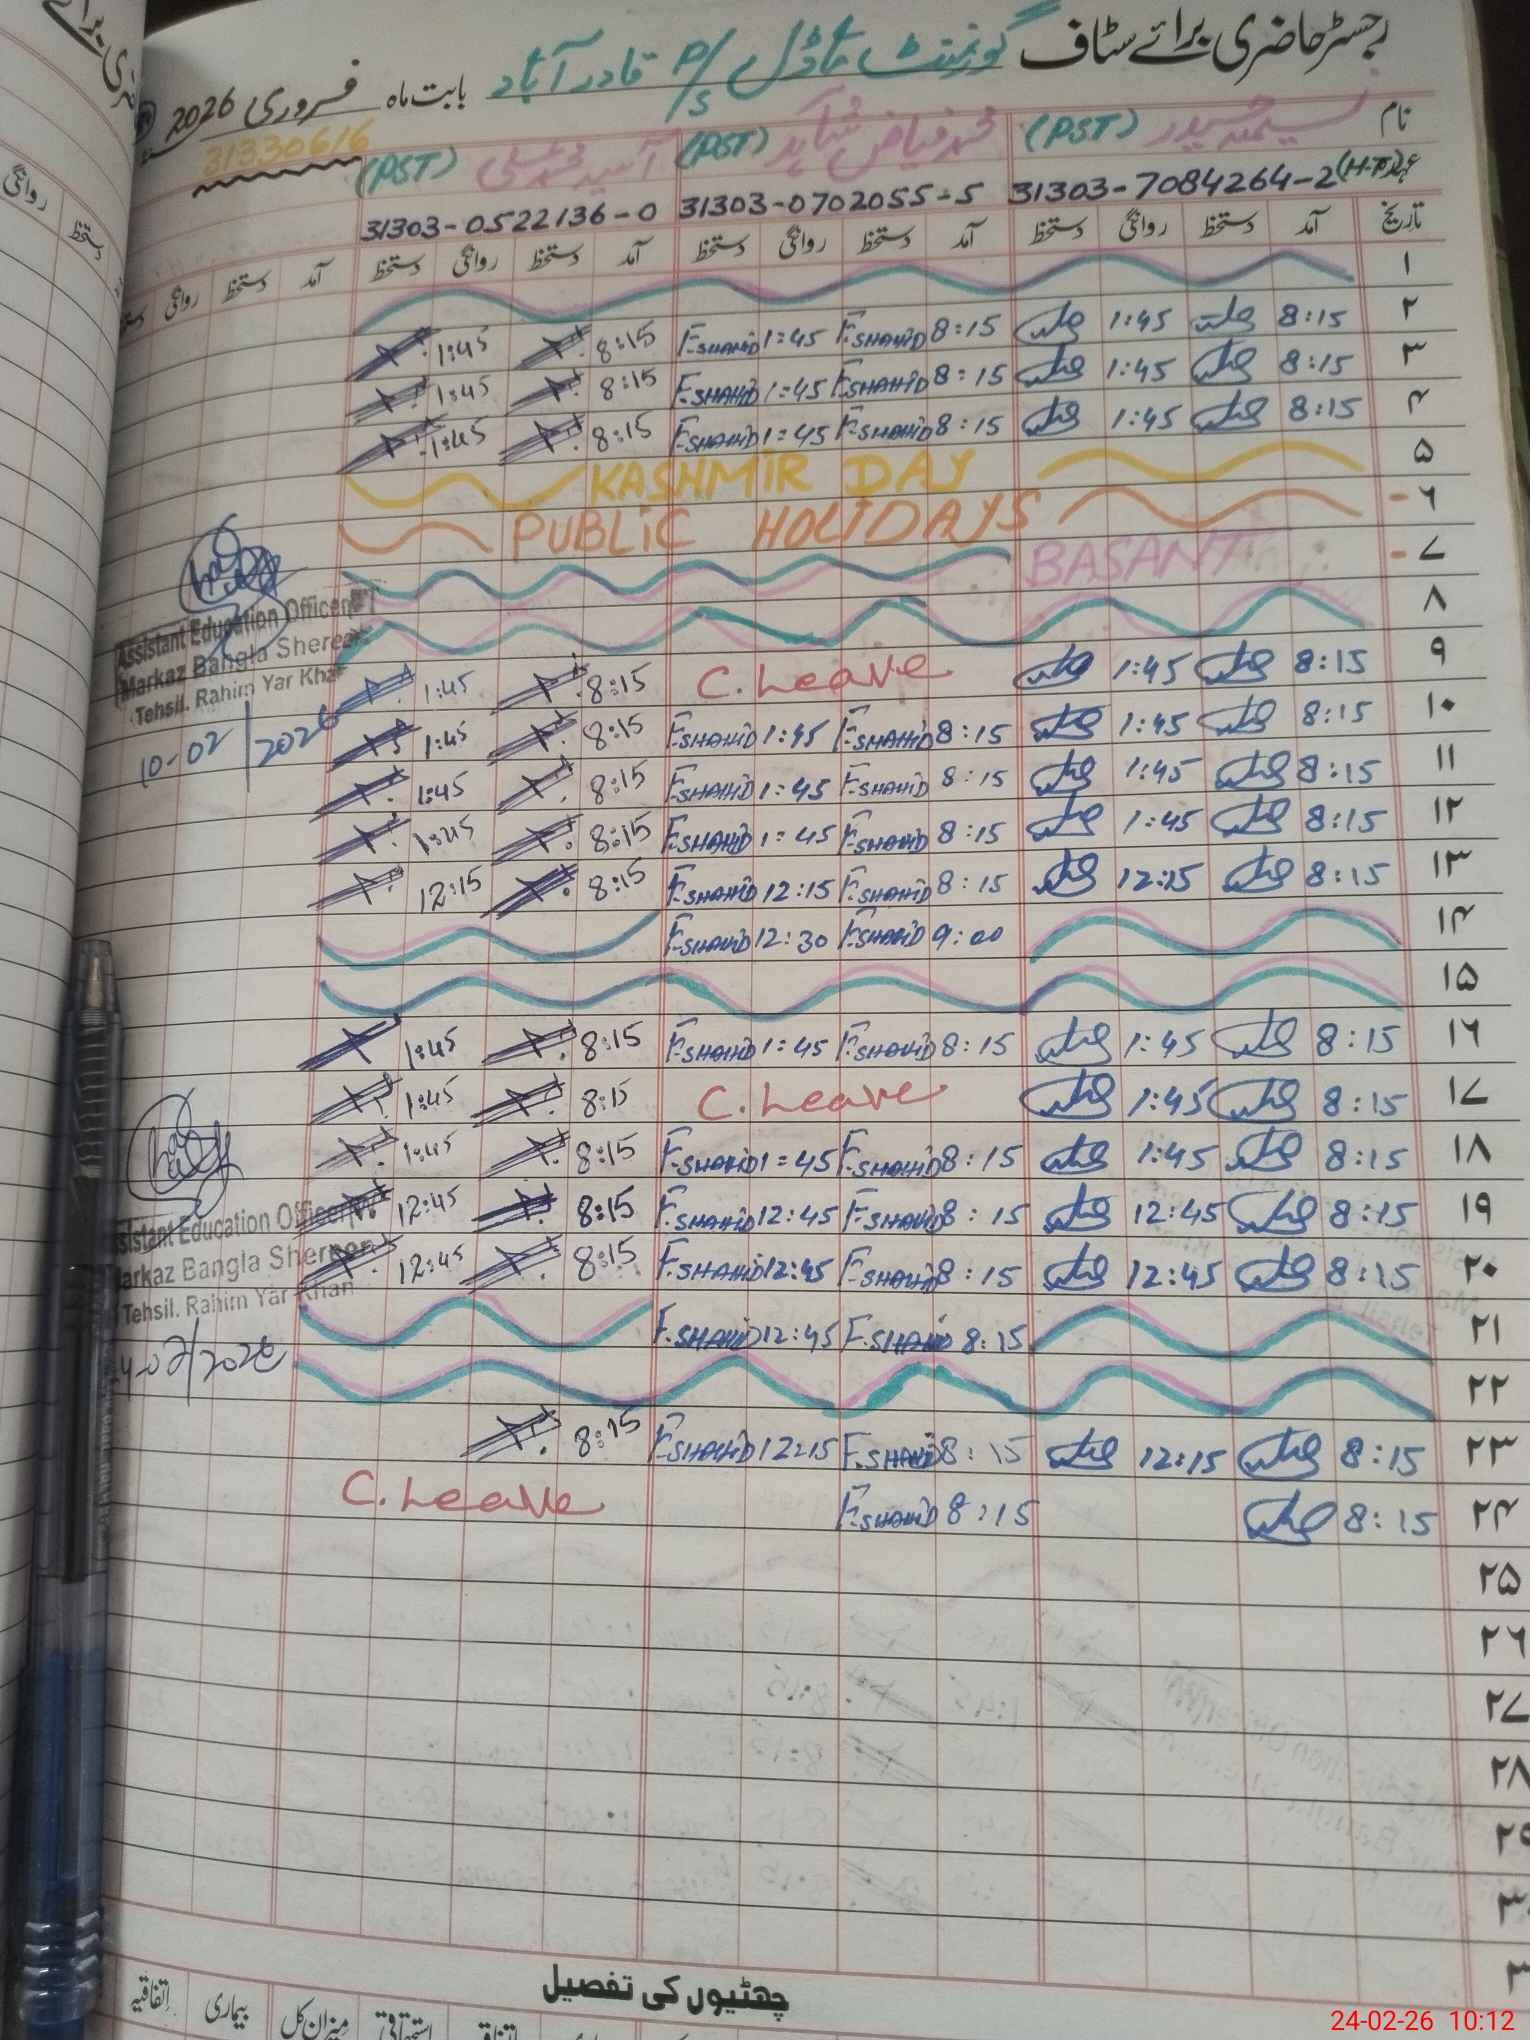 رجسٹر حاضری برائے سٹاف گورنمنٹ ماڈل P/S قادر آباد بابت ماہ فروری 2026
31330616
نام (PST) محمد فیاض شاہد (PST) (PST)
(H.T) 31303-7084264-2 31303-0702055-5 31303-0522136-0
تاریخ آمد دستخظ روانگی دستخظ آمد دستخظ روانگی دستخظ آمد دستخظ روانگی دستخظ آمد دستخظ روانگی
۱
۲ 8:15 1:45 8:15 F.SHAHID 1:45 F.SHAHID 8:15 1:45
۳ 8:15 1:45 8:15 F.SHAHID 1:45 F.SHAHID 8:15 1:45
۴ 8:15 1:45 8:15 F.SHAHID 1:45 F.SHAHID 8:15 1:45
۵ KASHMIR DAY
۶ PUBLIC HOLIDAYS
۷ BASANT
۸
۹ 8:15 1:45 C.Leave 8:15 1:45
۱۰ 8:15 1:45 8:15 F.SHAHID 1:45 F.SHAHID 8:15 1:45
۱۱ 8:15 1:45 8:15 F.SHAHID 1:45 F.SHAHID 8:15 1:45
۱۲ 8:15 1:45 8:15 F.SHAHID 1:45 F.SHAHID 8:15 1:45
۱۳ 8:15 12:15 8:15 F.SHAHID 12:15 F.SHAHID 8:15 12:15
۱۴ 9:00 F.SHAHID 12:30 F.SHAHID
۱۵
۱۶ 8:15 1:45 8:15 F.SHAHID 1:45 F.SHAHID 8:15 1:45
۱۷ 8:15 1:45 C.Leave 8:15 1:45
۱۸ 8:15 1:45 8:15 F.SHAHID 1:45 F.SHAHID 8:15 1:45
۱۹ 8:15 12:45 8:15 F.SHAHID 12:45 F.SHAHID 8:15 12:45
۲۰ 8:15 12:45 8:15 F.SHAHID 12:45 F.SHAHID 8:15 12:45
۲۱ 8:15 F.SHAHID 12:45 F.SHAHID
۲۲
۲۳ 8:15 12:15 8:15 F.SHAHID 12:15 F.SHAHID 8:15
۲۴ 8:15 8:15 F.SHAHID C.Leave
۲۵
۲۶
۲۷
۲۸
۲۹
Assistant Education Officer
Markaz Bangla Shereen
Tehsil. Rahim Yar Khan
10-02/2026
Assistant Education Officer
Markaz Bangla Shereen
Tehsil. Rahim Yar Khan
چھٹیوں کی تفصیل
استحقاقی میزان کل بیماری اتفاقیہ
24-02-26 10:12